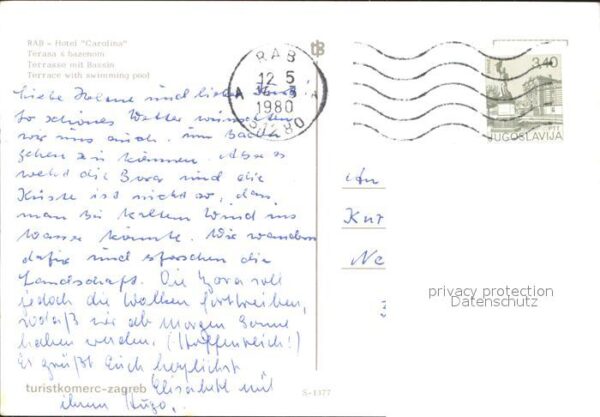 RAB - Hotel "Carolina"
Terasa s bazenom
Terrasse mit Bassin
Terrace with swimming pool
tB
RAB
12 5
A A
1980
51280
3,40
PTT
JUGOSLAVIJA
Liebe und liebe
So schönes Wetter wünschten
wir uns auch, um baden
gehen zu können. Aber es
weht die Bora und die
Küste ist nicht so, dass
man bei kaltem Wind ins
Wasser könnte. Wir wandern
dafür und erforschen die
Landschaft. Die Bora soll
jedoch die Wolken fortreiben,
sodaß wir ab morgen Sonne
haben werden. (Hoffentlich!)
Es grüßt Euch herzlichst
Elisabeth mit
ihrem Hugo.
An
Kur
Ne
privacy protection
Datenschutz
turistkomerc-zagreb
S-1377